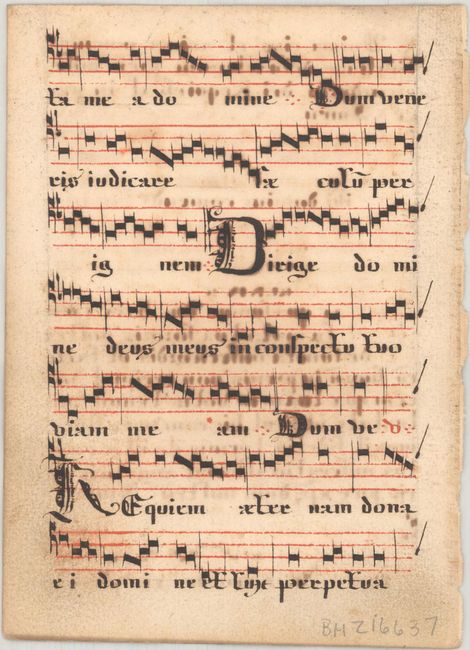 ta me a do mine Dum vene
ris iudicare sæ culũ per
ig nem Dirige do mi
ne deus meus in conspectu tuo
viam me am Dum ve
REquiem æter nam dona
e i domi ne et lux perpetua
BMZ16637